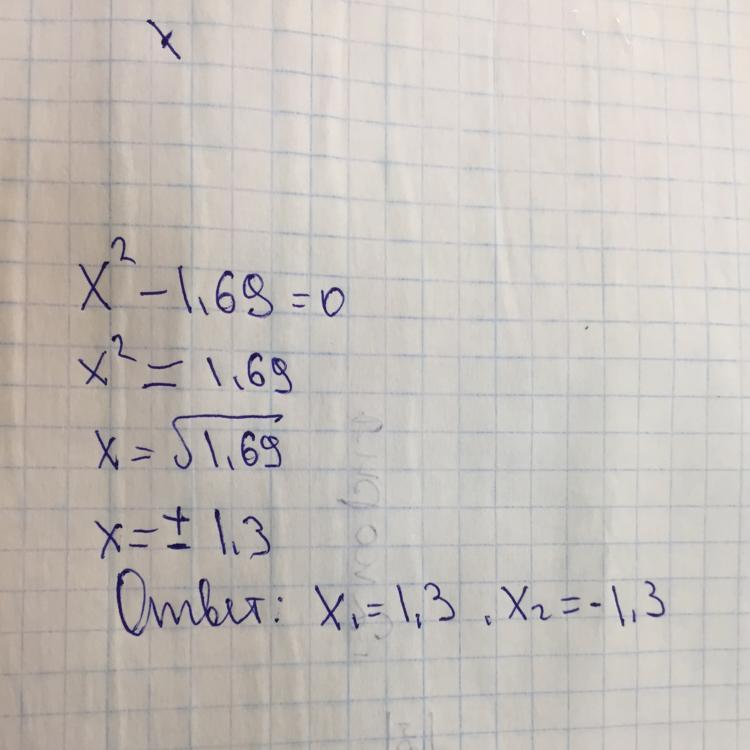 x
x² - 1,69 = 0
x² = 1,69
x = √1,69
x = ± 1,3
Ответ: x₁ = 1,3, x₂ = -1,3